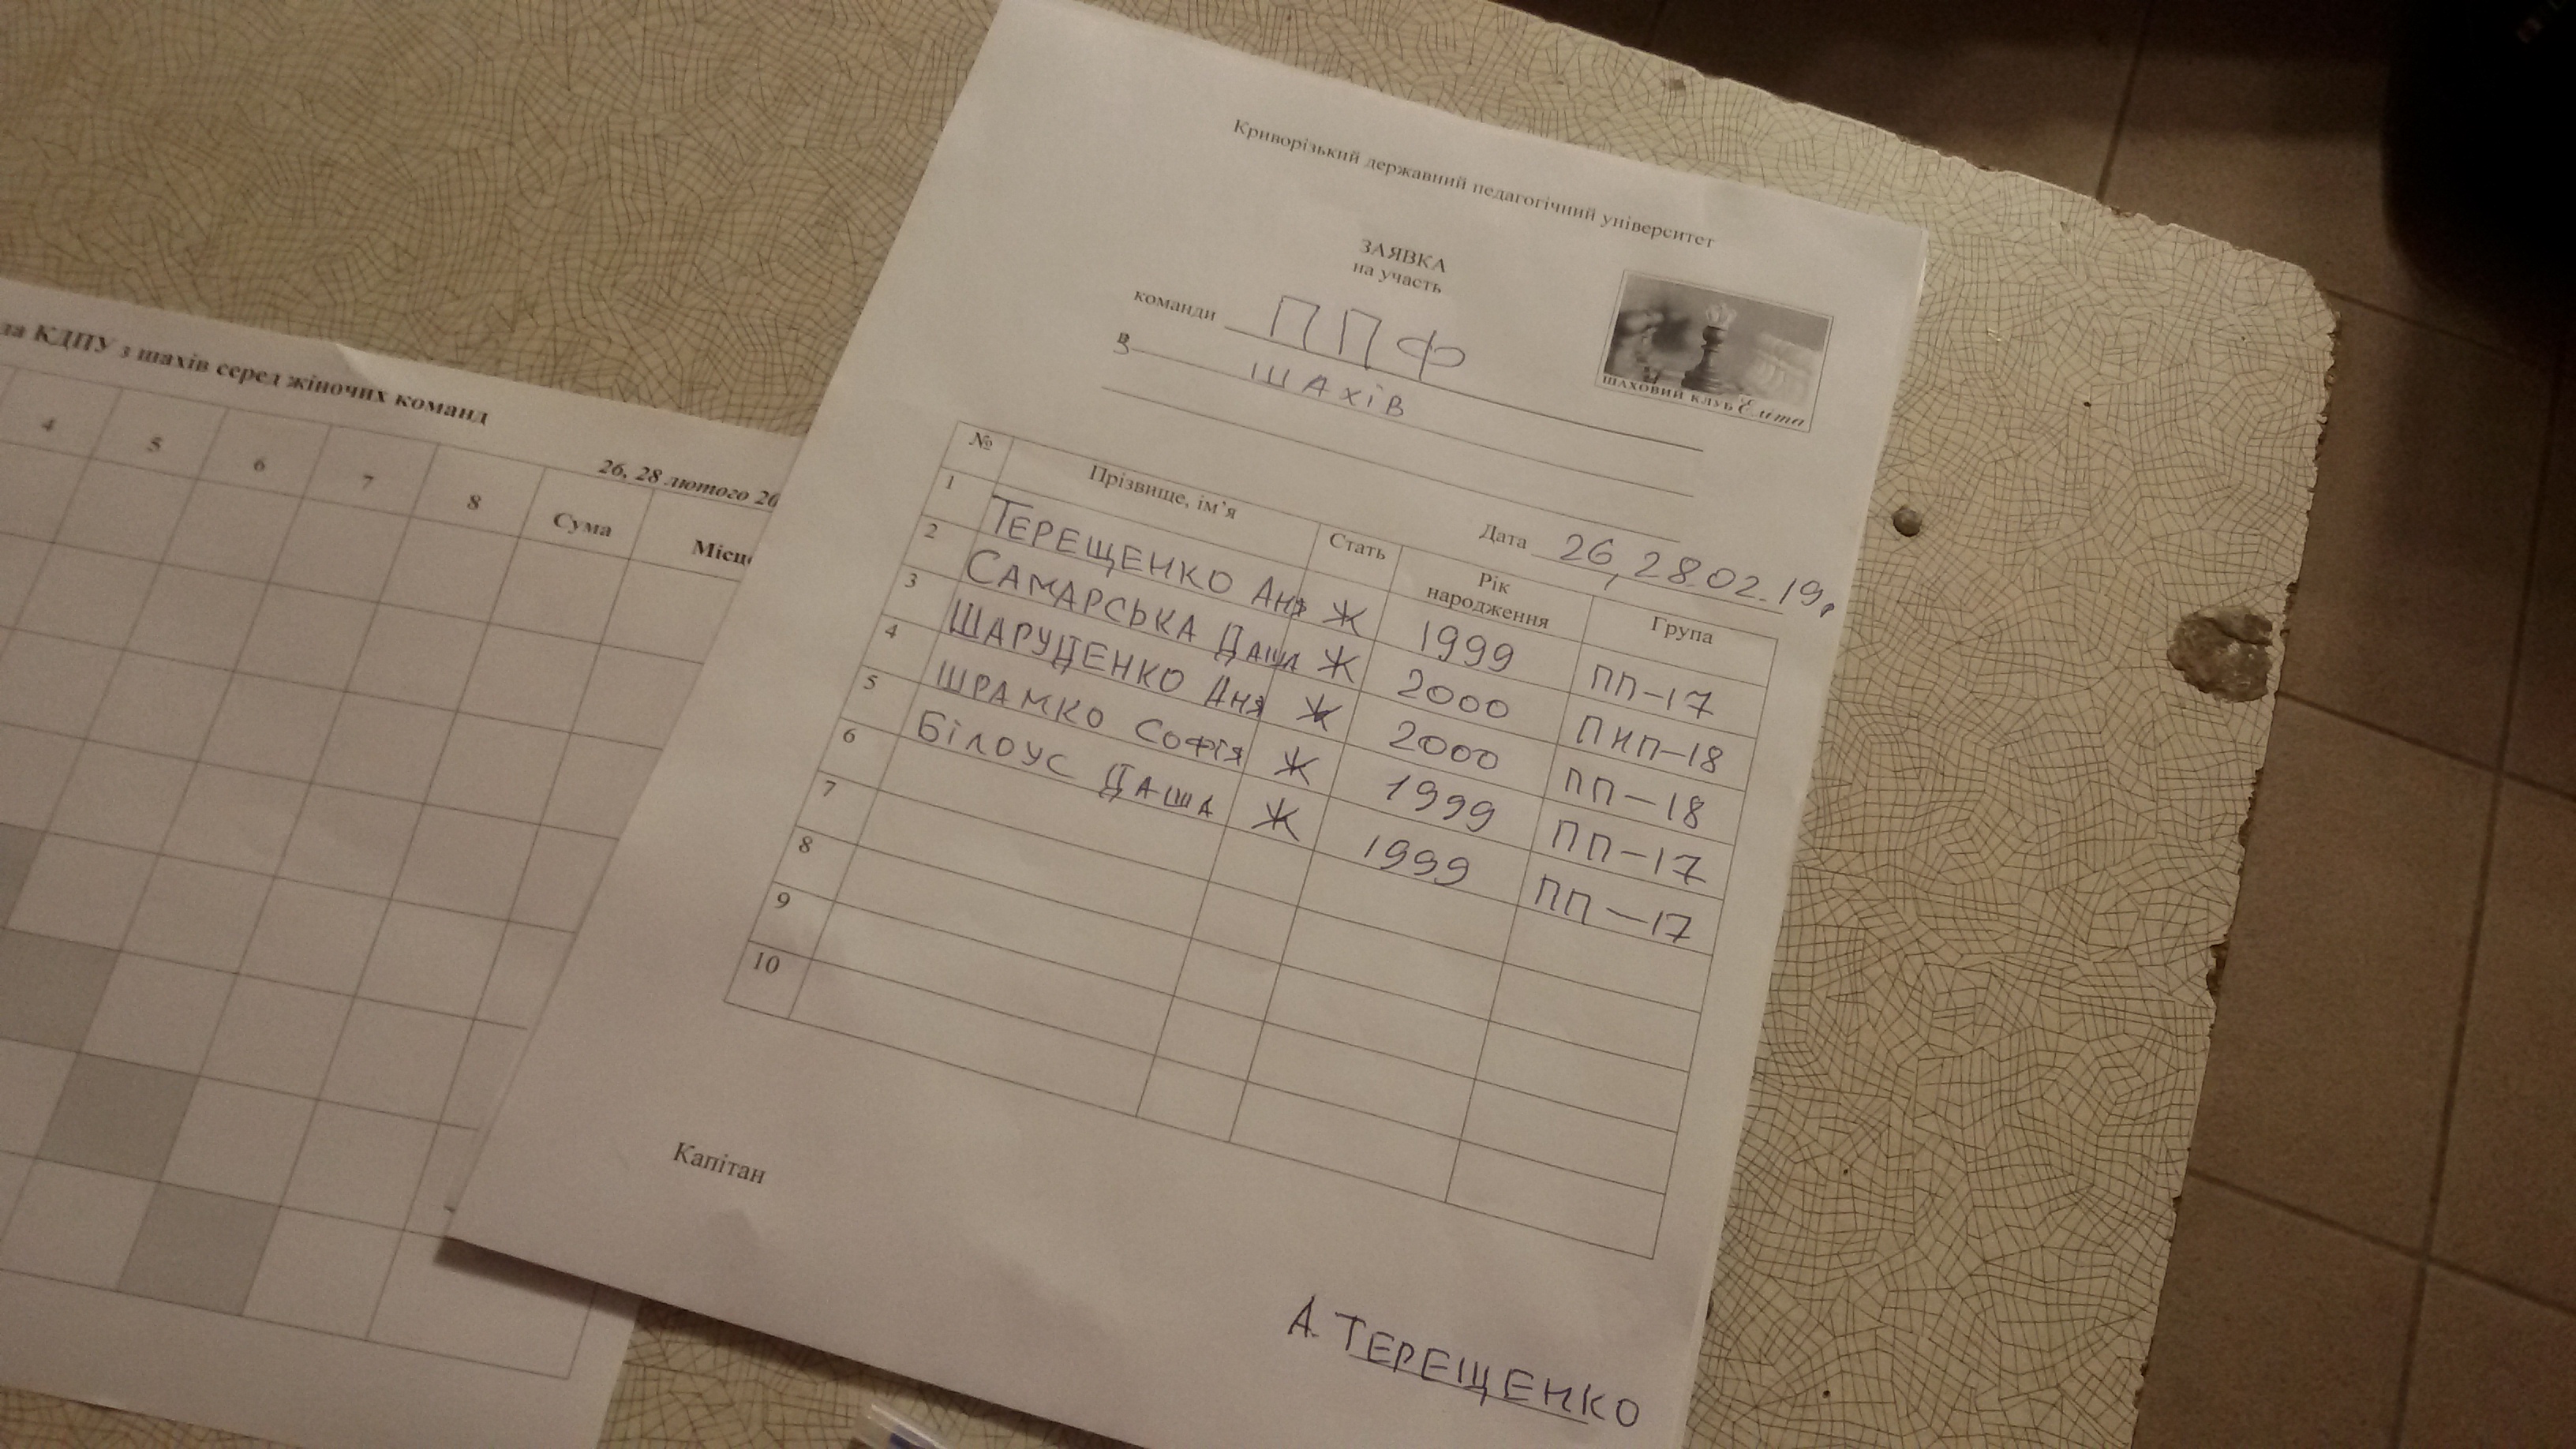 да КДПУ з шахів серед жіночих команд
26, 28 лютого 20
4 5 6 7 8 Сума Місце
Криворізький державний педагогічний університет
ЗАЯВКА
на участь
команди ППФ
З шахів
ШАХОВИЙ КЛУБ Еліта
Дата 26, 28.02.19р
№ Прізвище, ім’я Стать Рік народження Група
1 ТЕРЕЩЕНКО Аня Ж 1999 ПП-17
2 САМАРСЬКА Даша Ж 2000 ПНП-18
3 ШАРУЦЕНКО Аня Ж 2000 ПП-18
4 ШРАМКО Софія Ж 1999 ПП-17
5 БІЛОУС Даша Ж 1999 ПП-17
6
7
8
9
10
Капітан
А. ТЕРЕЩЕНКО